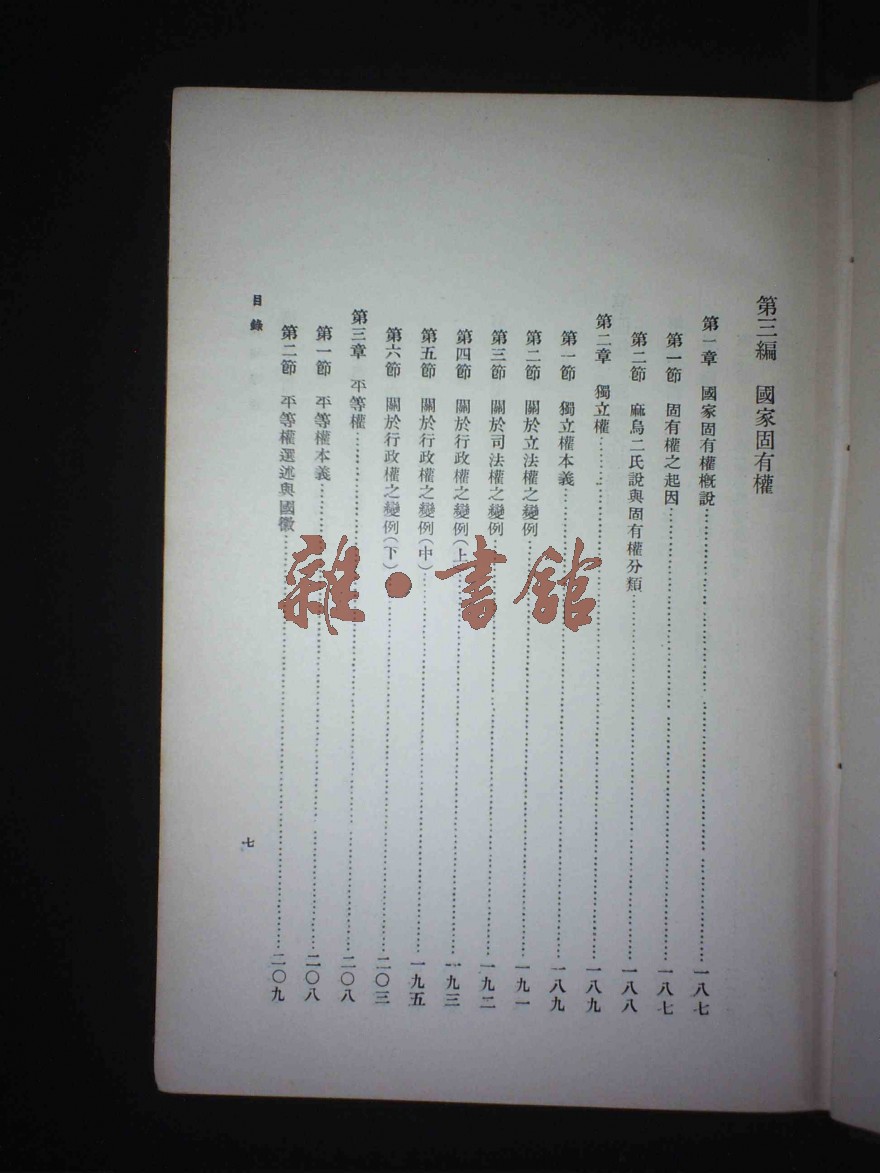 第三編　國家固有權
第一章　國家固有權槪說……一八七
第一節　固有權之起因……一八七
第二節　麻烏二氏說與固有權分類……一八八
第二章　獨立權……一八九
第一節　獨立權本義……一八九
第二節　關於立法權之變例……一九一
第三節　關於司法權之變例……一九二
第四節　關於行政權之變例(上……一九三
第五節　關於行政權之變例(中)……一九五
第六節　關於行政權之變例(下)……二〇三
第三章　平等權……二〇八
第一節　平等權本義……二〇八
第二節　平等權選述與國徽……二〇九
目錄
七
雜·書館